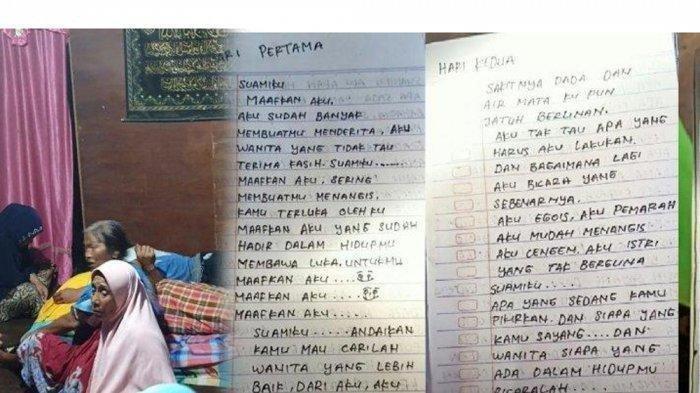 RI PERTAMA
SUAMIKU
MAAFKAN AKU.
AKU SUDAH BANYAK
MEMBUATMU MENDERITA, AKU
WANITA YANG TIDAK TAU
TERIMA KASIH. SUAMIKU......
MAAFKAN AKU, SERING
MEMBUATMU MENANGIS.
KAMU TERLUKA OLEH KU
MAAFKAN AKU YANG SUDAH
HADIR DALAM HIDUPMU
MEMBAWA LUKA UNTUKMU
MAAFKAN AKU....
MAAFKAN AKU....
MAAFKAN AKU.....
SUAMIKU.....ANDAIKAN
KAMU MAU CARILAH
WANITA YANG LEBIH
BAIK, DARI AKU, AKU
HARI KEDUA
SAKITNYA DADA DAN
AIR MATA KU PUN
JATUH BERLINAN.
AKU TAK TAU APA YANG
HARUS AKU LAKUKAN.
DAN BAGAIMANA LAGI
AKU BICARA YANG
SEBENARNYA.
AKU EGOIS, AKU PEMARAH
AKU MUDAH MENANGIS
AKU CENGEN, AKU ISTRI
YANG TAK BERGUNA
SUAMIKU......
APA YANG SEDANG KAMU
PIKIRKAN DAN SIAPA YANG
KAMU SAYANG....DAN
WANITA SIAPA YANG
ADA DALAM HIDUPMU
BICARALAH....